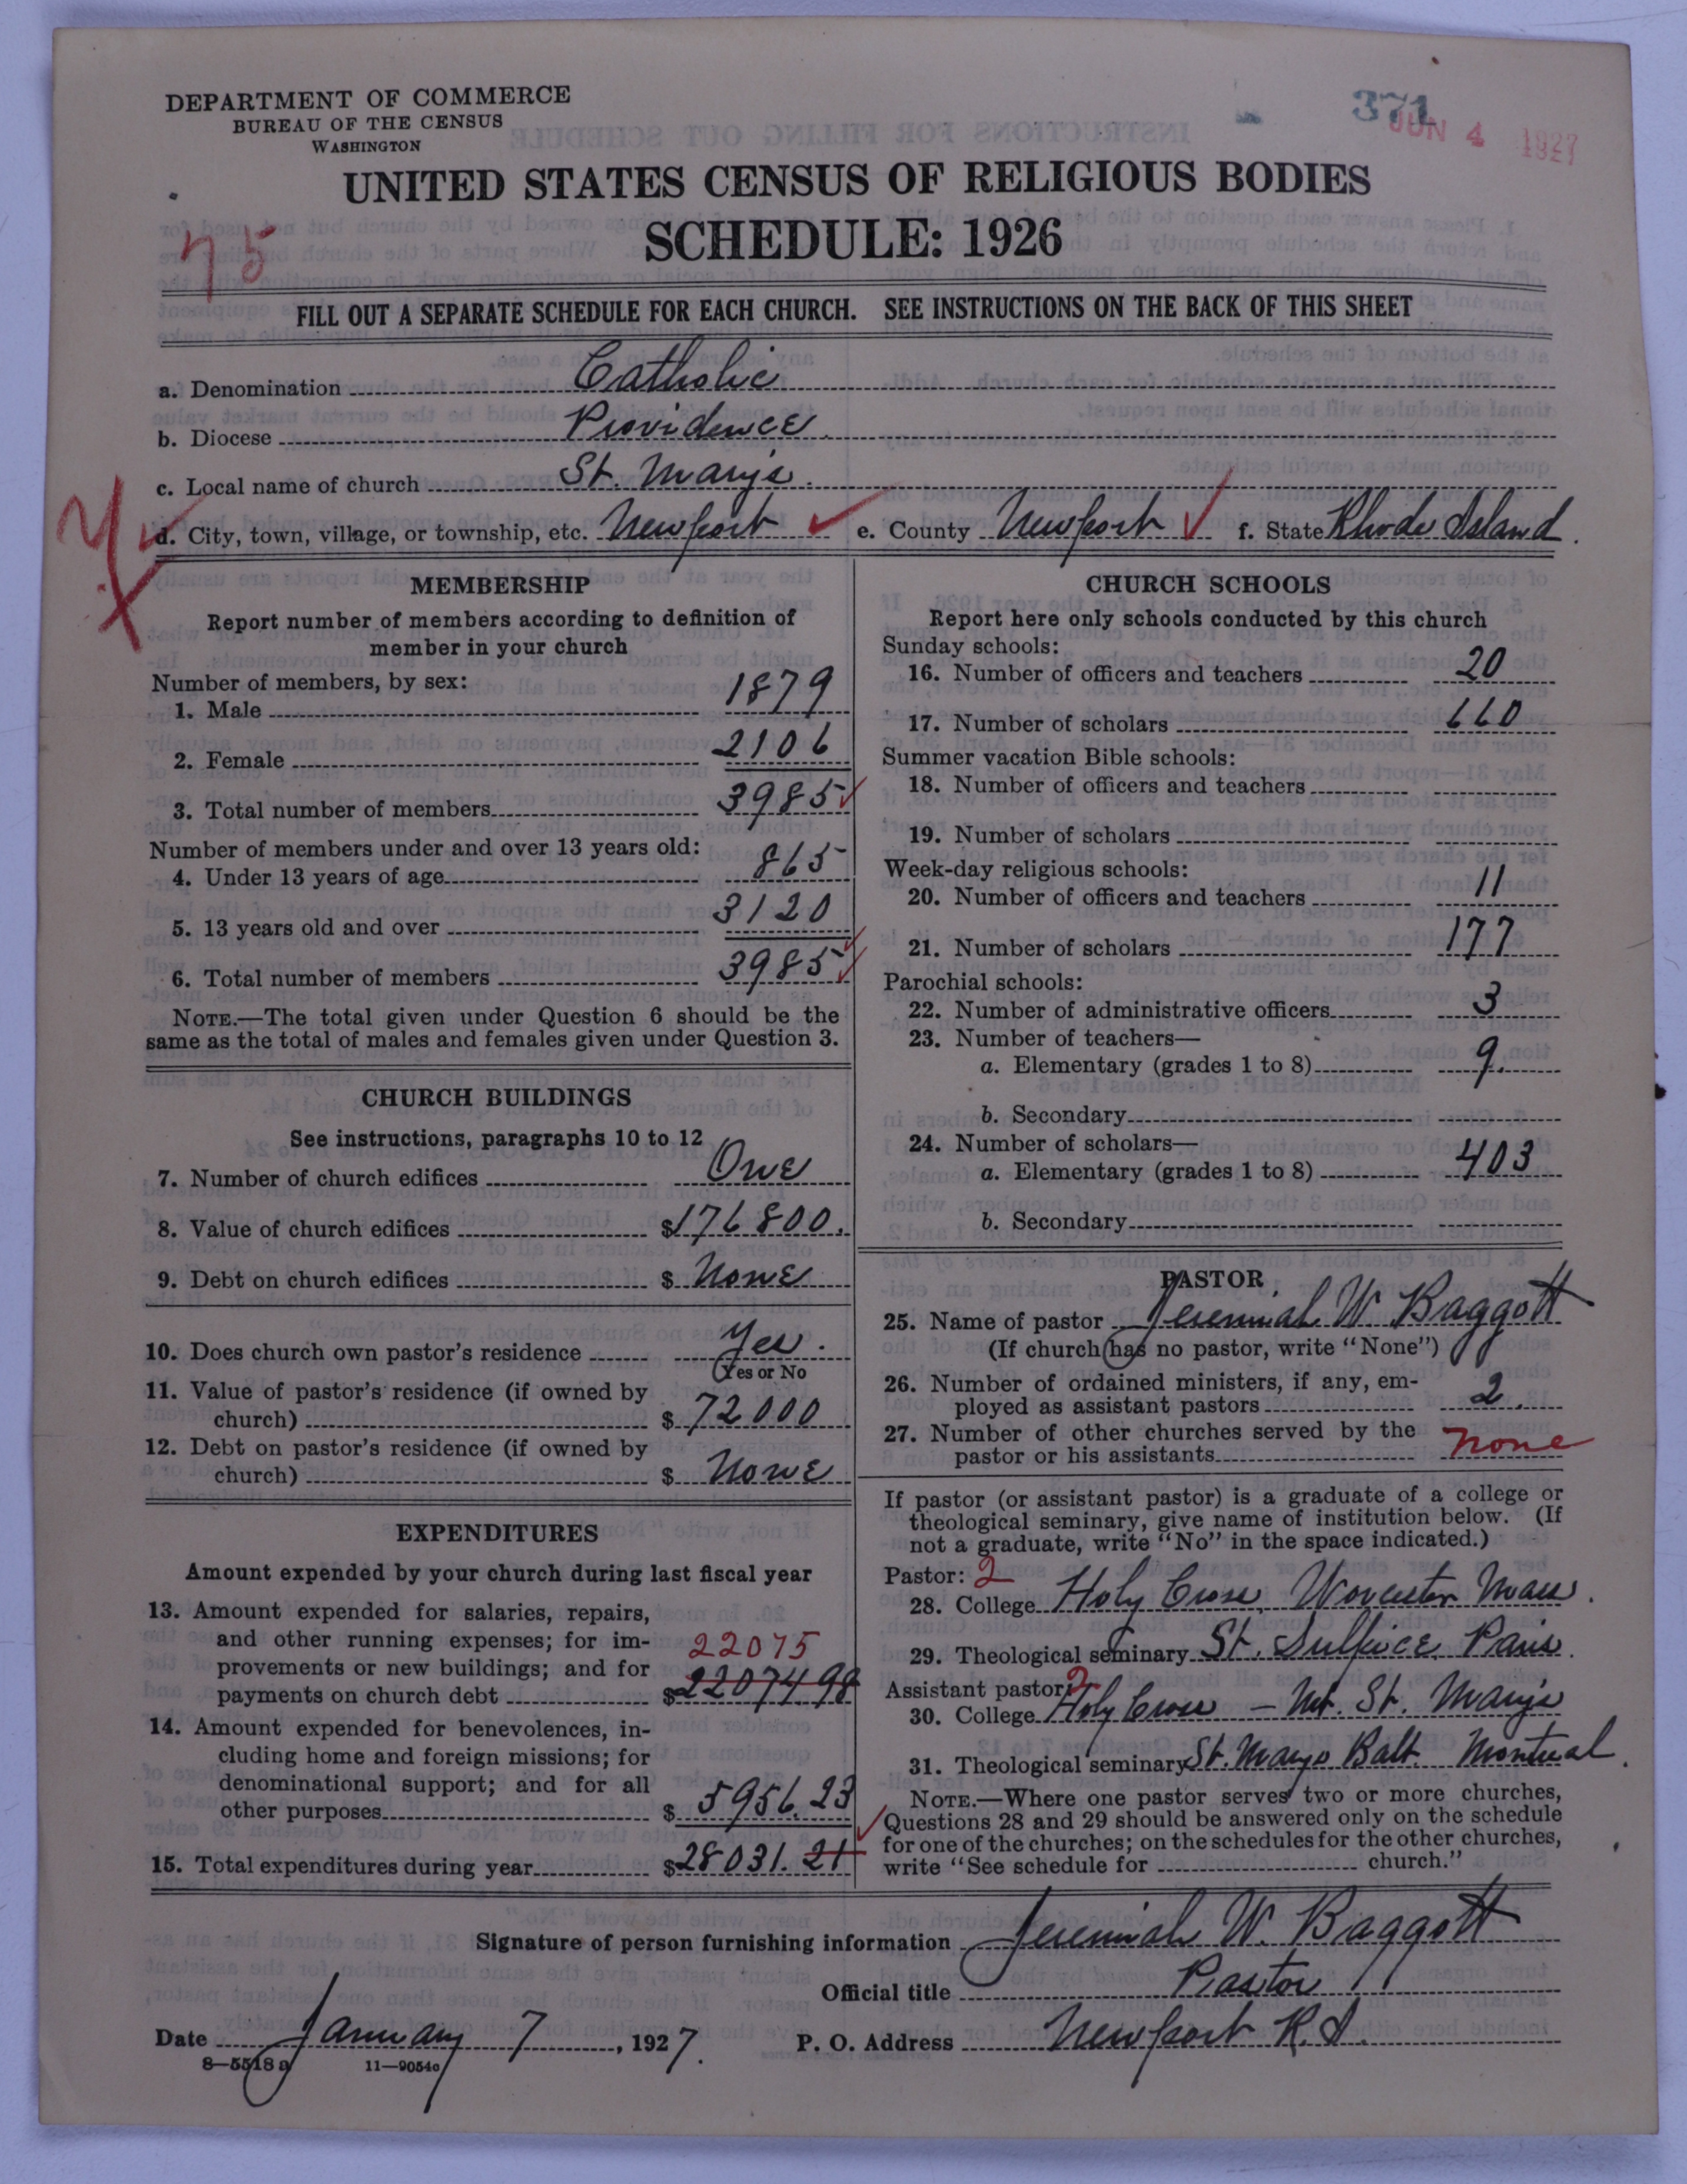 DEPARTMENT OF COMMERCE
BUREAU OF THE CENSUS
WASHINGTON
371
JUN 4 1927
UNITED STATES CENSUS OF RELIGIOUS BODIES
SCHEDULE: 1926
75
FILL OUT A SEPARATE SCHEDULE FOR EACH CHURCH. SEE INSTRUCTIONS ON THE BACK OF THIS SHEET
a. Denomination Catholic
b. Diocese Providence
c. Local name of church St. Mary's
d. City, town, village, or township, etc. Newport e. County Newport f. State Rhode Island.
MEMBERSHIP
Report number of members according to definition of
member in your church
Number of members, by sex:
1. Male 1879
2. Female 2106
3. Total number of members 3985
Number of members under and over 13 years old:
4. Under 13 years of age 865
5. 13 years old and over 3120
6. Total number of members 3985
NOTE.—The total given under Question 6 should be the
same as the total of males and females given under Question 3.
CHURCH BUILDINGS
See instructions, paragraphs 10 to 12
7. Number of church edifices One
8. Value of church edifices $176800.
9. Debt on church edifices $ None
10. Does church own pastor's residence Yes.
(Yes or No
11. Value of pastor's residence (if owned by
church) $ 72000
12. Debt on pastor's residence (if owned by
church) $ None
EXPENDITURES
Amount expended by your church during last fiscal year
13. Amount expended for salaries, repairs,
and other running expenses; for im-
22075
provements or new buildings; and for
payments on church debt $22074 98
14. Amount expended for benevolences, in-
cluding home and foreign missions; for
denominational support; and for all
other purposes $ 5956.23
15. Total expenditures during year $28031.21
CHURCH SCHOOLS
Report here only schools conducted by this church
Sunday schools:
16. Number of officers and teachers 20
17. Number of scholars 660
Summer vacation Bible schools:
18. Number of officers and teachers
19. Number of scholars
Week-day religious schools:
20. Number of officers and teachers 11
21. Number of scholars 177
Parochial schools:
22. Number of administrative officers 3
23. Number of teachers—
a. Elementary (grades 1 to 8) 9.
b. Secondary
24. Number of scholars—
a. Elementary (grades 1 to 8) 403
b. Secondary
PASTOR
25. Name of pastor Jeremiah W Baggott
(If church has no pastor, write "None")
26. Number of ordained ministers, if any, em-
ployed as assistant pastors 2.
27. Number of other churches served by the
pastor or his assistants none
If pastor (or assistant pastor) is a graduate of a college or
theological seminary, give name of institution below. (If
not a graduate, write "No" in the space indicated.)
Pastor: 2
28. College Holy Cross, Worcester Mass.
29. Theological seminary St. Sulpice, Paris.
Assistant pastor: 2
30. College Holy Cross – Mt. St. Mary's
31. Theological seminary St. Marys Balt. Montreal.
NOTE.—Where one pastor serves two or more churches,
Questions 28 and 29 should be answered only on the schedule
for one of the churches; on the schedules for the other churches,
write "See schedule for church."
Signature of person furnishing information Jeremiah W. Baggott
Official title Pastor
Date January 7, 1927. P. O. Address Newport R.I.
8—5518a 11—9054o